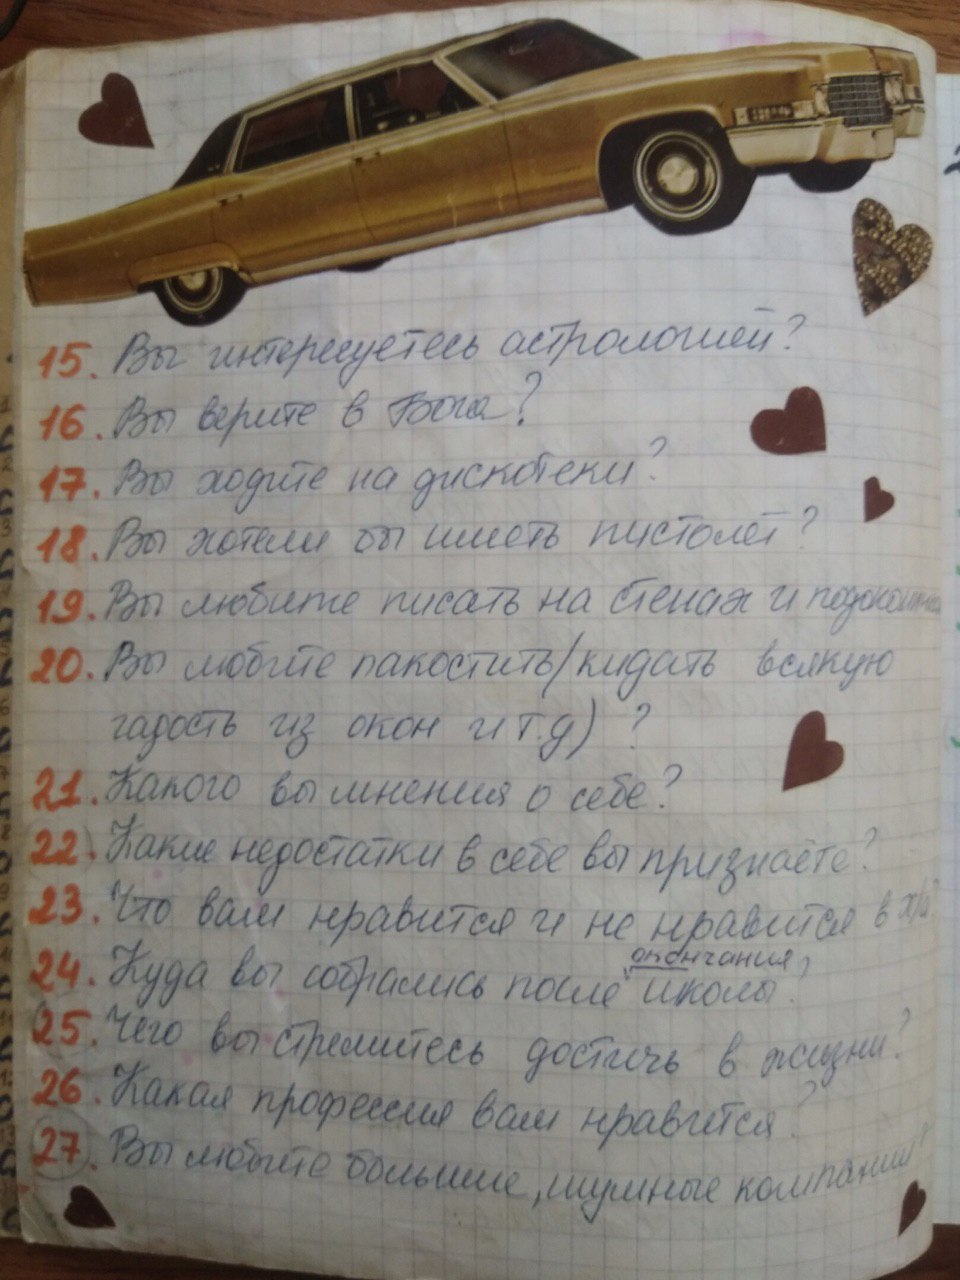 15. Вы интересуетесь астрологией?
16. Вы верите в Бога?
17. Вы ходите на дискотеки?
18. Вы хотели бы иметь пистолет?
19. Вы любите писать на стенах и
20. Вы любите пакостить/кидать всякую
гадость из окон и т.д) ?
21. Какого вы мнения о себе?
22. Какие недостатки в себе вы признаёте?
23. Что вам нравится и не нравится в
окончания
24. Куда вы собрались после школы?
25. Чего вы стремитесь достичь в жизни?
26. Какая профессия вам нравится?
27. Вы любите большие, шумные компании?